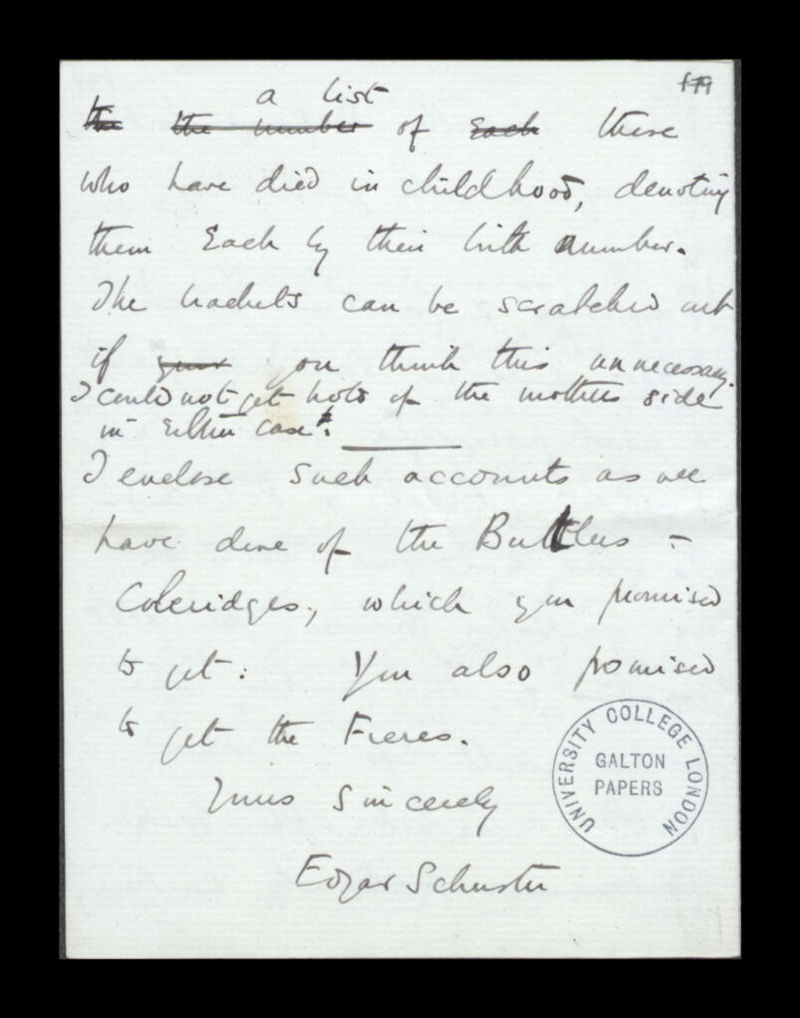 a list
the the number of each those
who have died in childhood, denoting
them each by their birth number.
The brackets can be scratched out
if your you think this unnecessary.
I could not get hold of the mothers side
in either case.
I enclose such accounts as we
have done of the Butlers -
Coleridges, which you promised
to get: You also promised
to get the Freres.
Yours sincerely
Edgar Schuster
UNIVERSITY COLLEGE LONDON
GALTON
PAPERS